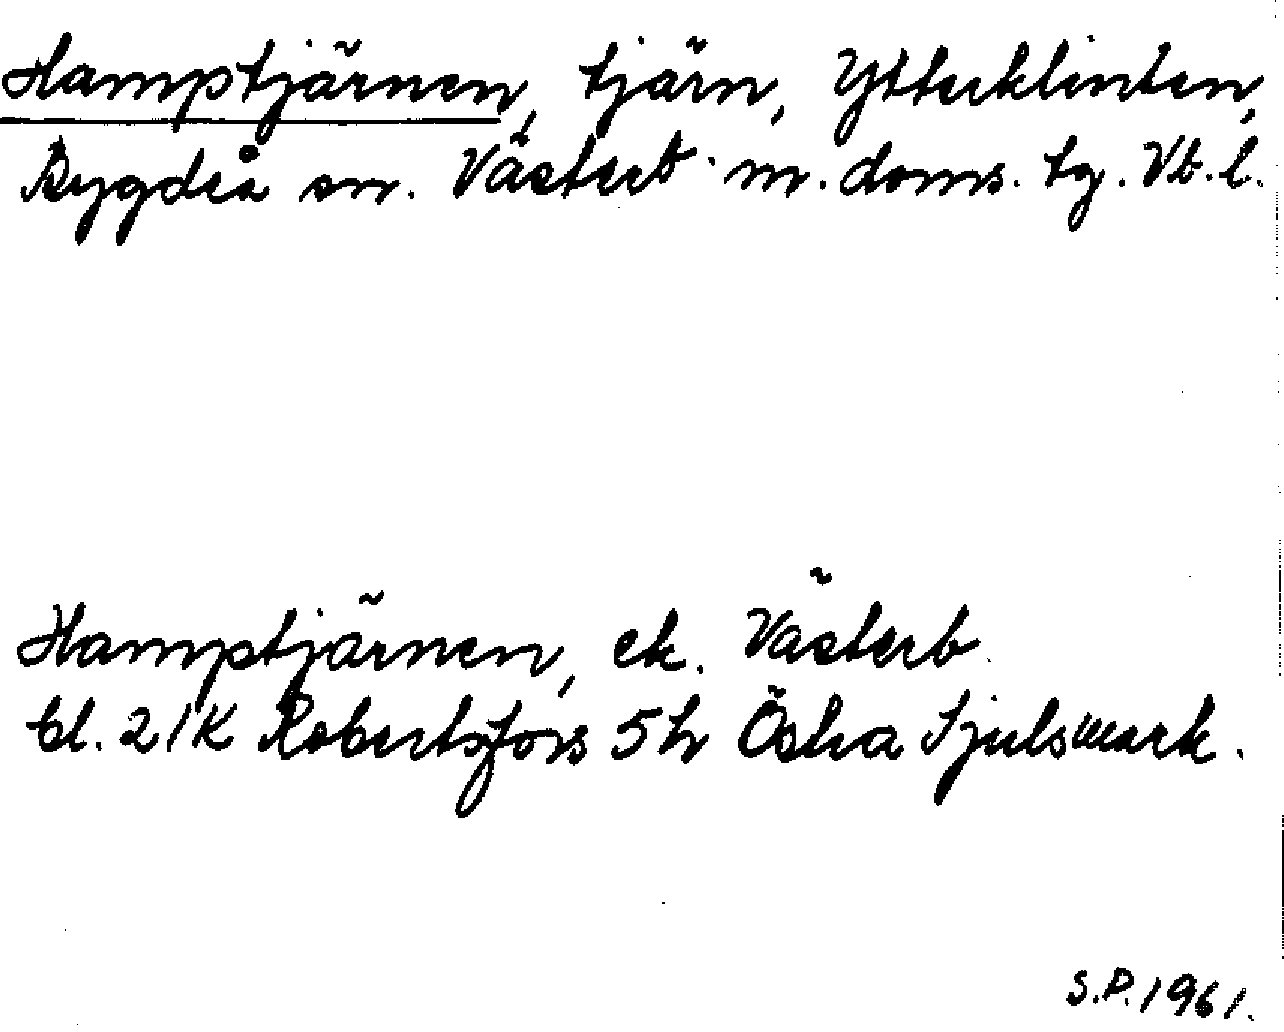 Hamptjärnen, tjärn, Ytterklinten,
Bygdeå sn. Västerb. m. doms. tg. Vb. l.
Hamptjärnen, ek. Västerb.
bl. 21K Robertsfors 5h Östra Sjulsmark.
S.P. 1961.